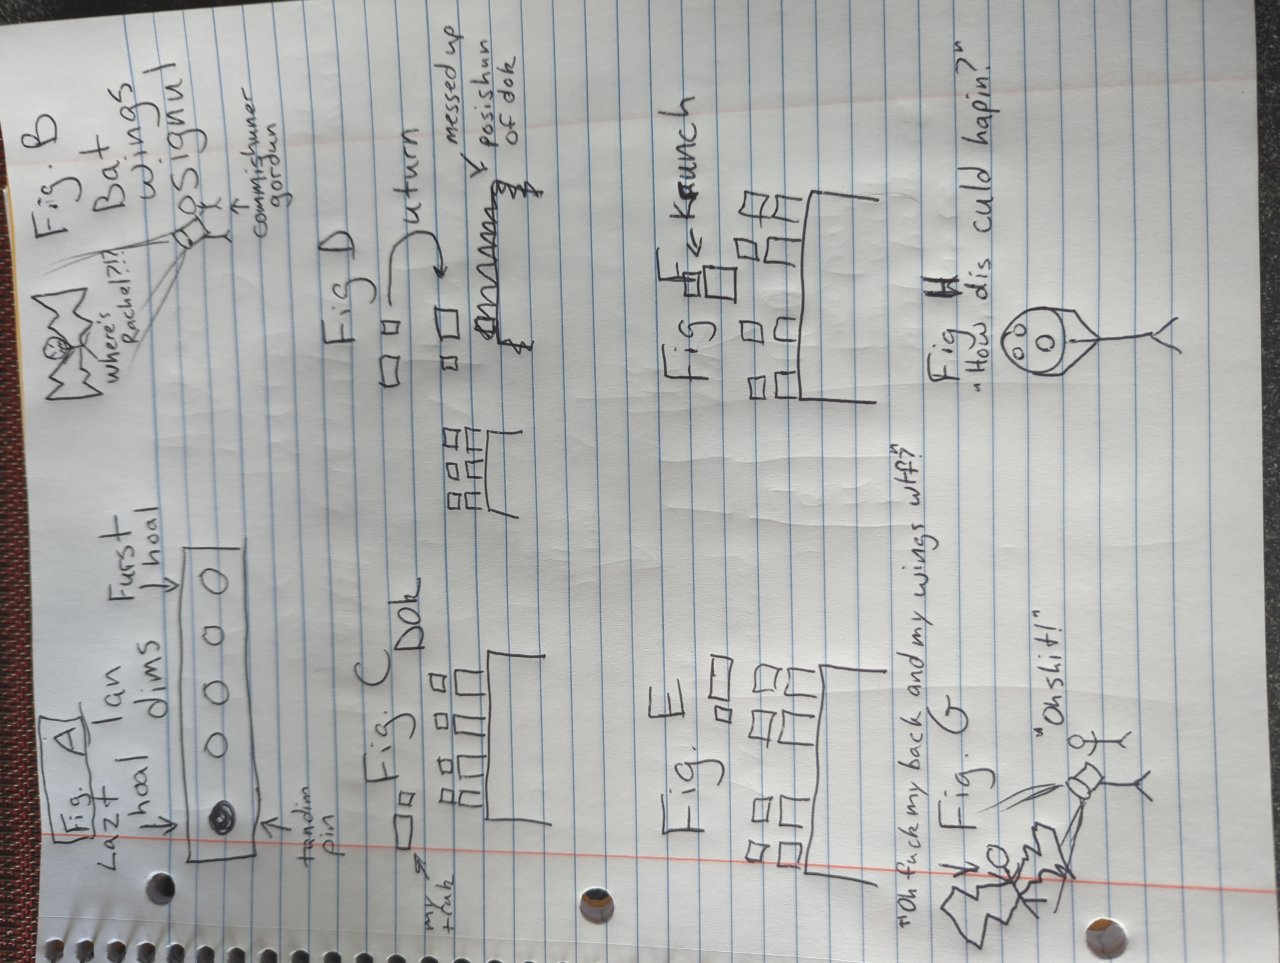 Fig. A
Lazt hoal
Ian dims
Furst hoal
tandim
pin
Fig. B
Bat
wings
Signul
where's
Rachel?!?!
commishuner
gordun
Fig. C
Dok
my
truk
Fig D
uturn
messed up
posishun
of dok
Fig. E
Fig F
Kaunch
"Oh fuck my back and my wings wtf?"
Fig. G
"Oh shit!"
Fig H
"How dis culd hapin?"